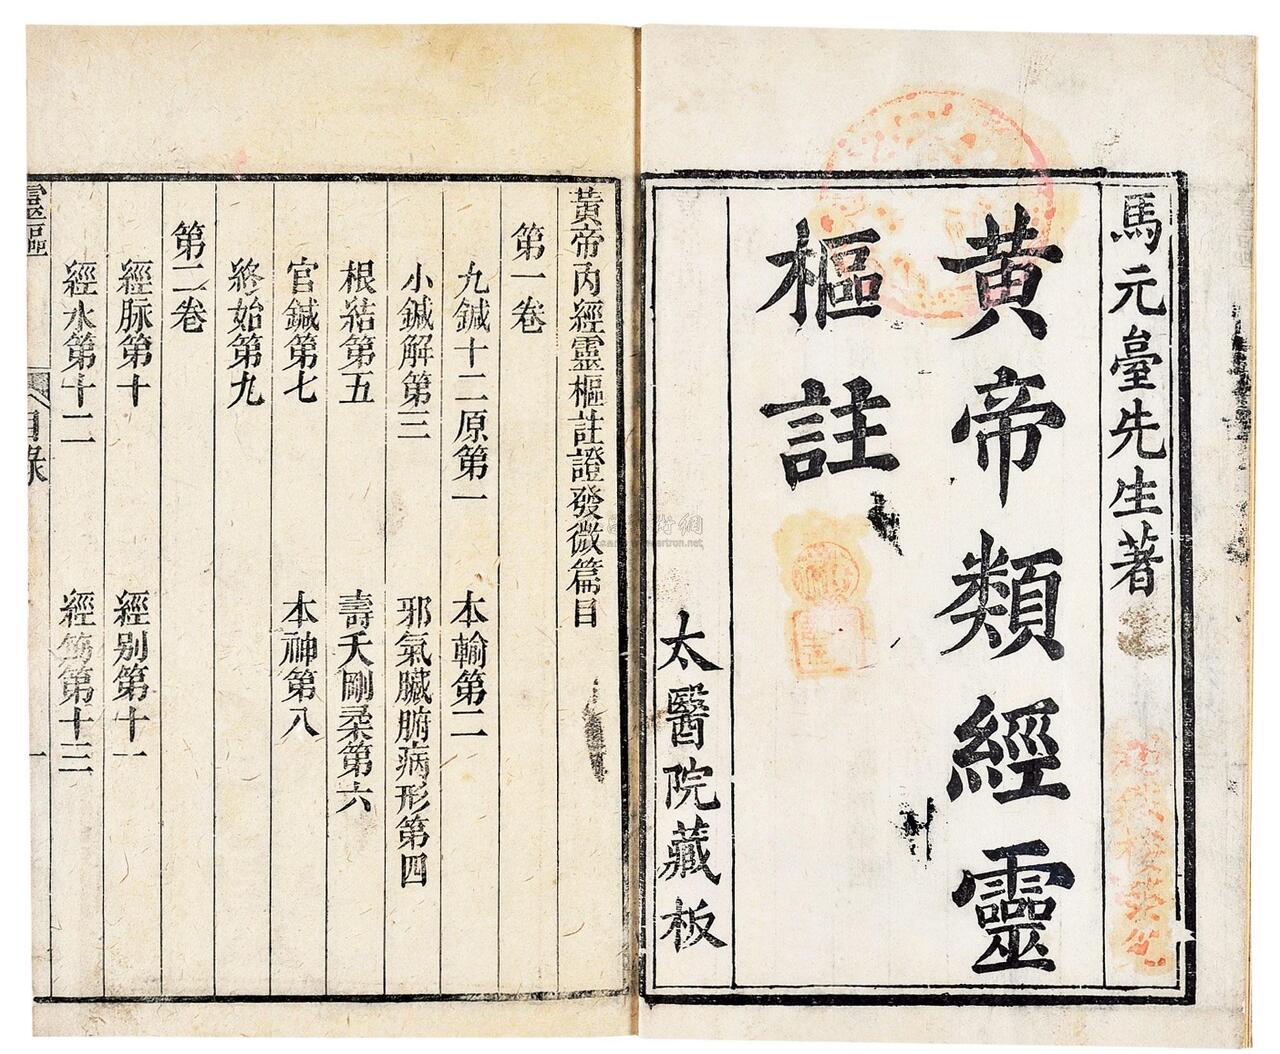 馬元臺先生著
黃帝類經靈
樞註
太醫院藏板
黃帝內經靈樞註證發微篇目
第一卷
九鍼十二原第一 本輸第二
小鍼解第三 邪氣臟腑病形第四
根結第五 壽夭剛柔第六
官鍼第七 本神第八
終始第九
第二卷
經脉第十 經別第十一
經水第十二 經筋第十三
靈樞 目錄 一